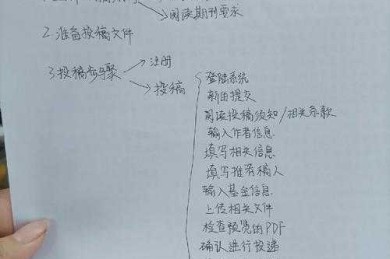 阅读期刊要求
2.准备投稿文件
3.投稿步骤
注册
投稿
登陆系统
新的提交
阅读投稿须知/相关条款
输入作者信息
填写相关信息
填写推荐稿人
输入基金信息
上传相关文件
检查预览的PDF
确认进行投递